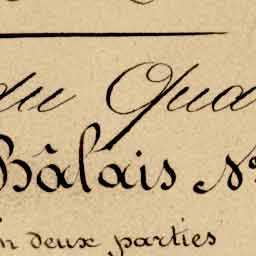 du Qua
Bâlais No
en deux parties